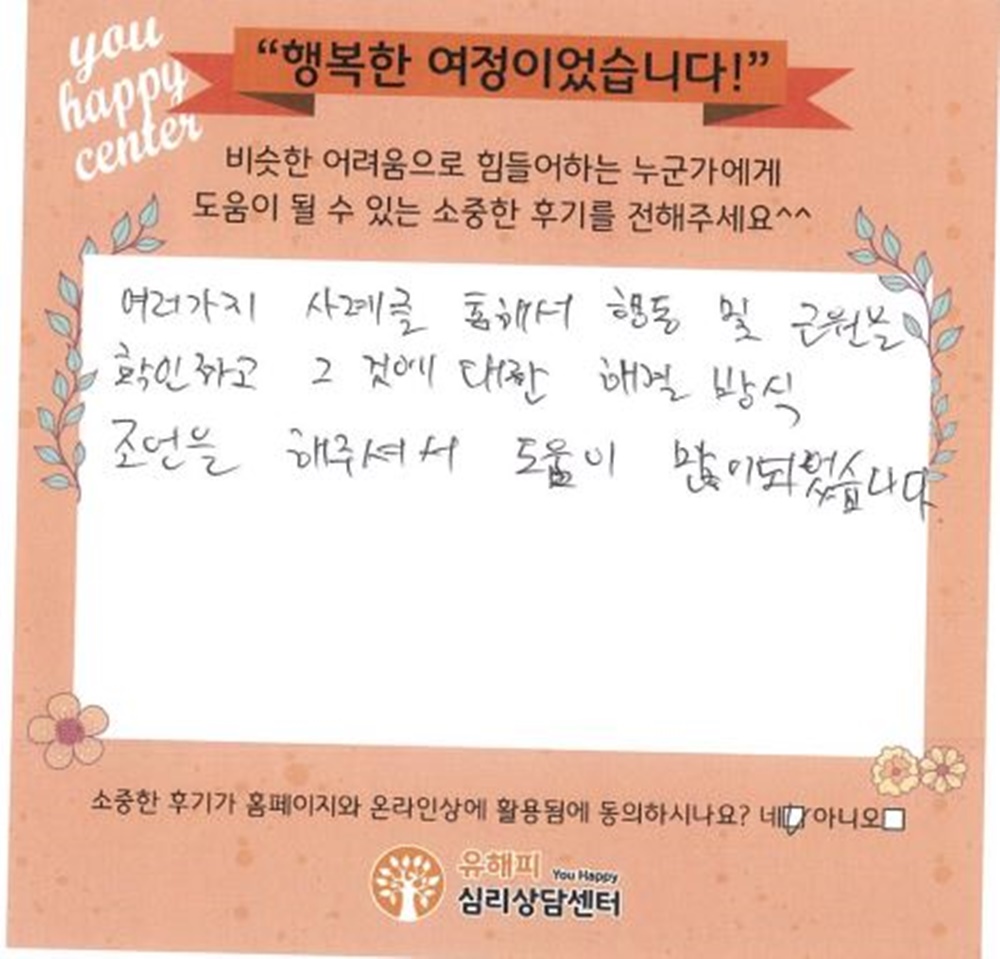 you
happy
center
“행복한 여정이었습니다!”
비슷한 어려움으로 힘들어하는 누군가에게
도움이 될 수 있는 소중한 후기를 전해주세요^^
여러가지 사례를 통해서 행동 및 근원을
확인하고 그 것에 대한 해결 방식
조언을 해주셔서 도움이 많이되었습니다
소중한 후기가 홈페이지와 온라인상에 활용됨에 동의하시나요? 네 아니오
유해피 You Happy
심리상담센터